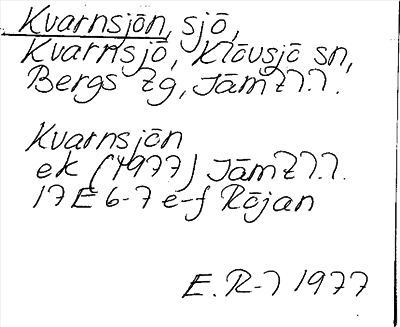 Kvarnsjön, sjö,
Kvarnsjö, Klövsjö sn,
Bergs tg, Jämtl.
Kvarnsjön
ek (1977) Jämtl.
17E 6-7 e-f Röjan
E. R-l 1977